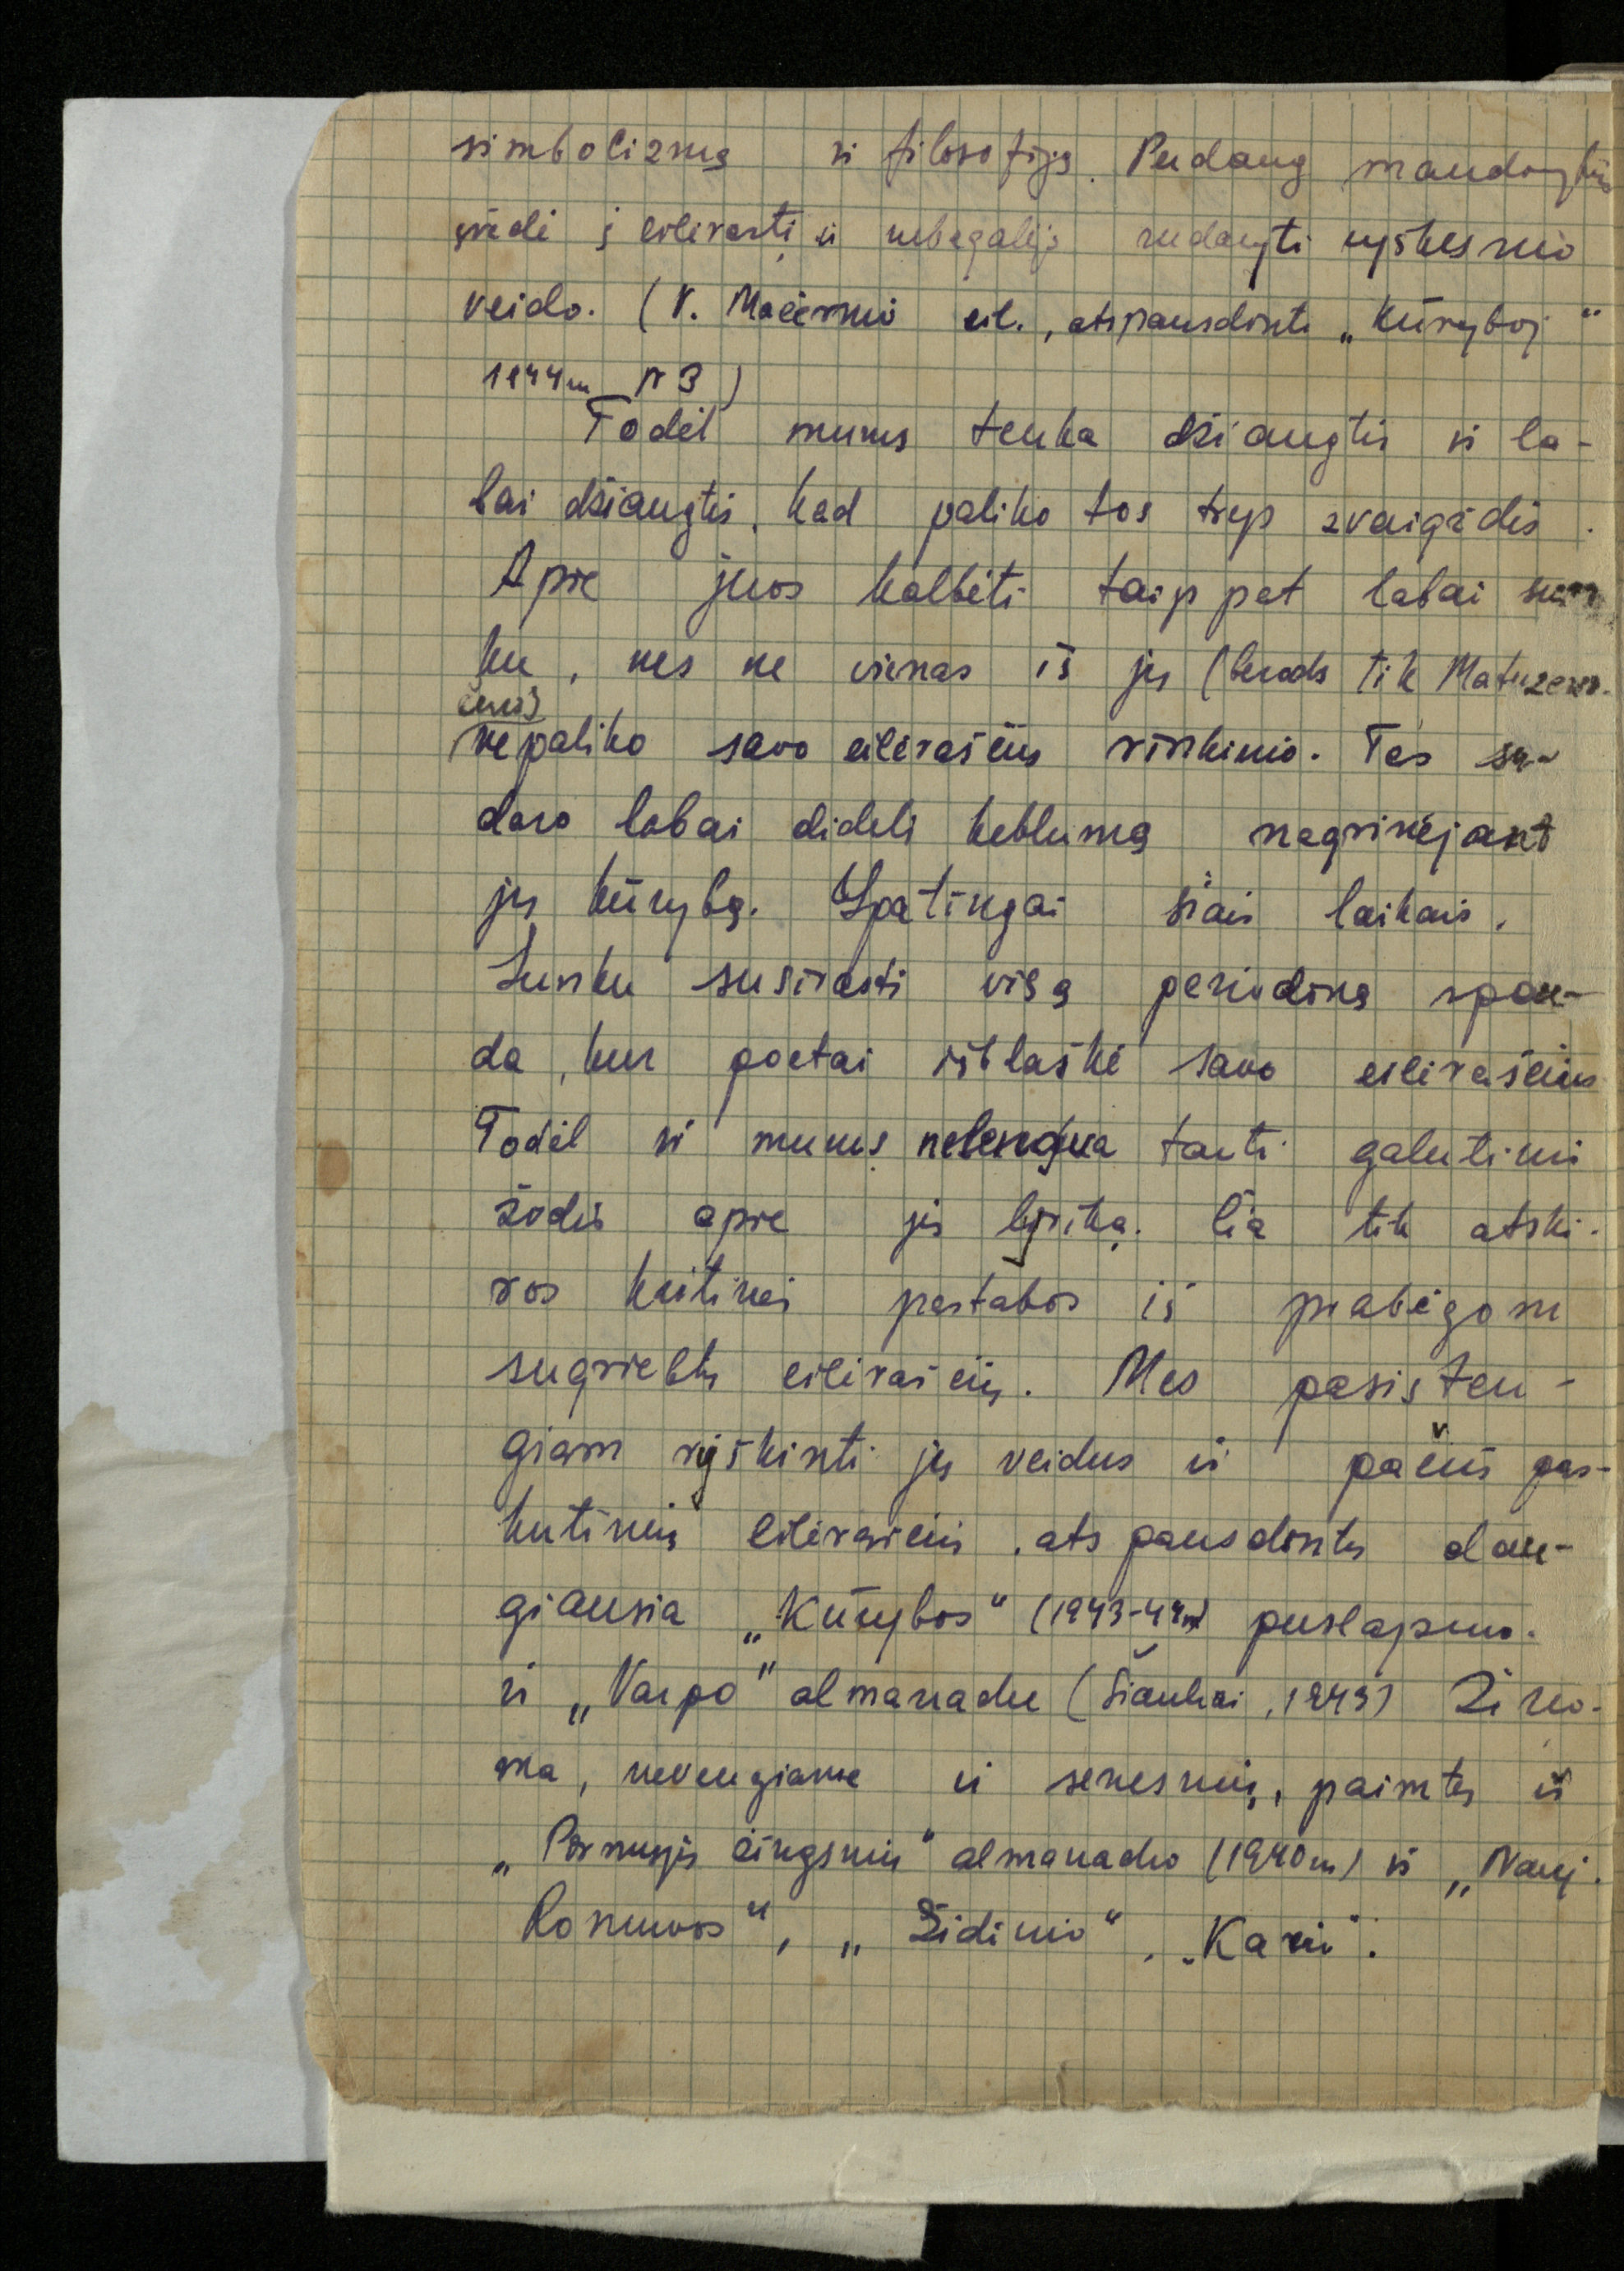 simbolizmą ir filosofiją. Perdaug
įvedė į eilėraštį ir nebegalėjo sudaryti ryškesnio
veido. (V. Mačernio eil., atspausdinti „Kūryboj"
1944m N 3)
Todėl mums tenka džiaugtis ir la-
bai džiaugtis, kad paliko tos trys žvaigždės.
Apie juos kalbėti taip pat labai sun
ku, nes ne vienas iš jų (berods tik Matuzevi-
čius)
nepaliko savo eilėraščių rinkinio. Tas su-
daro labai didelį keblumą nagrinėjant
jų kūrybą. Ypatingai šiais laikais.
Sunku susirasti visą periodinę spau-
dą, kur poetai išblaškė savo eilėraščius
Todėl ir mums nelengva tarti galutinį
žodis apie jų lyriką. Čia tik atski-
ros kritinės pastabos iš prabėgom
sugriebtų eilėraščių. Mes pasisten-
giam ryškinti jų veidus iš pačių pas-
kutinių eilėraščių, atspausdintų dau-
giausia „Kūrybos" (1943-44m) puslapiuo.
ir „Varpo" almanache (Šiauliai, 1943) Žino-
ma, nevengiame ir senesnių, paimtų iš
„Pirmųjų žingsnių" almanacho (1940m) iš „Nauj.
Romuvos", „Židinio", „Kario".